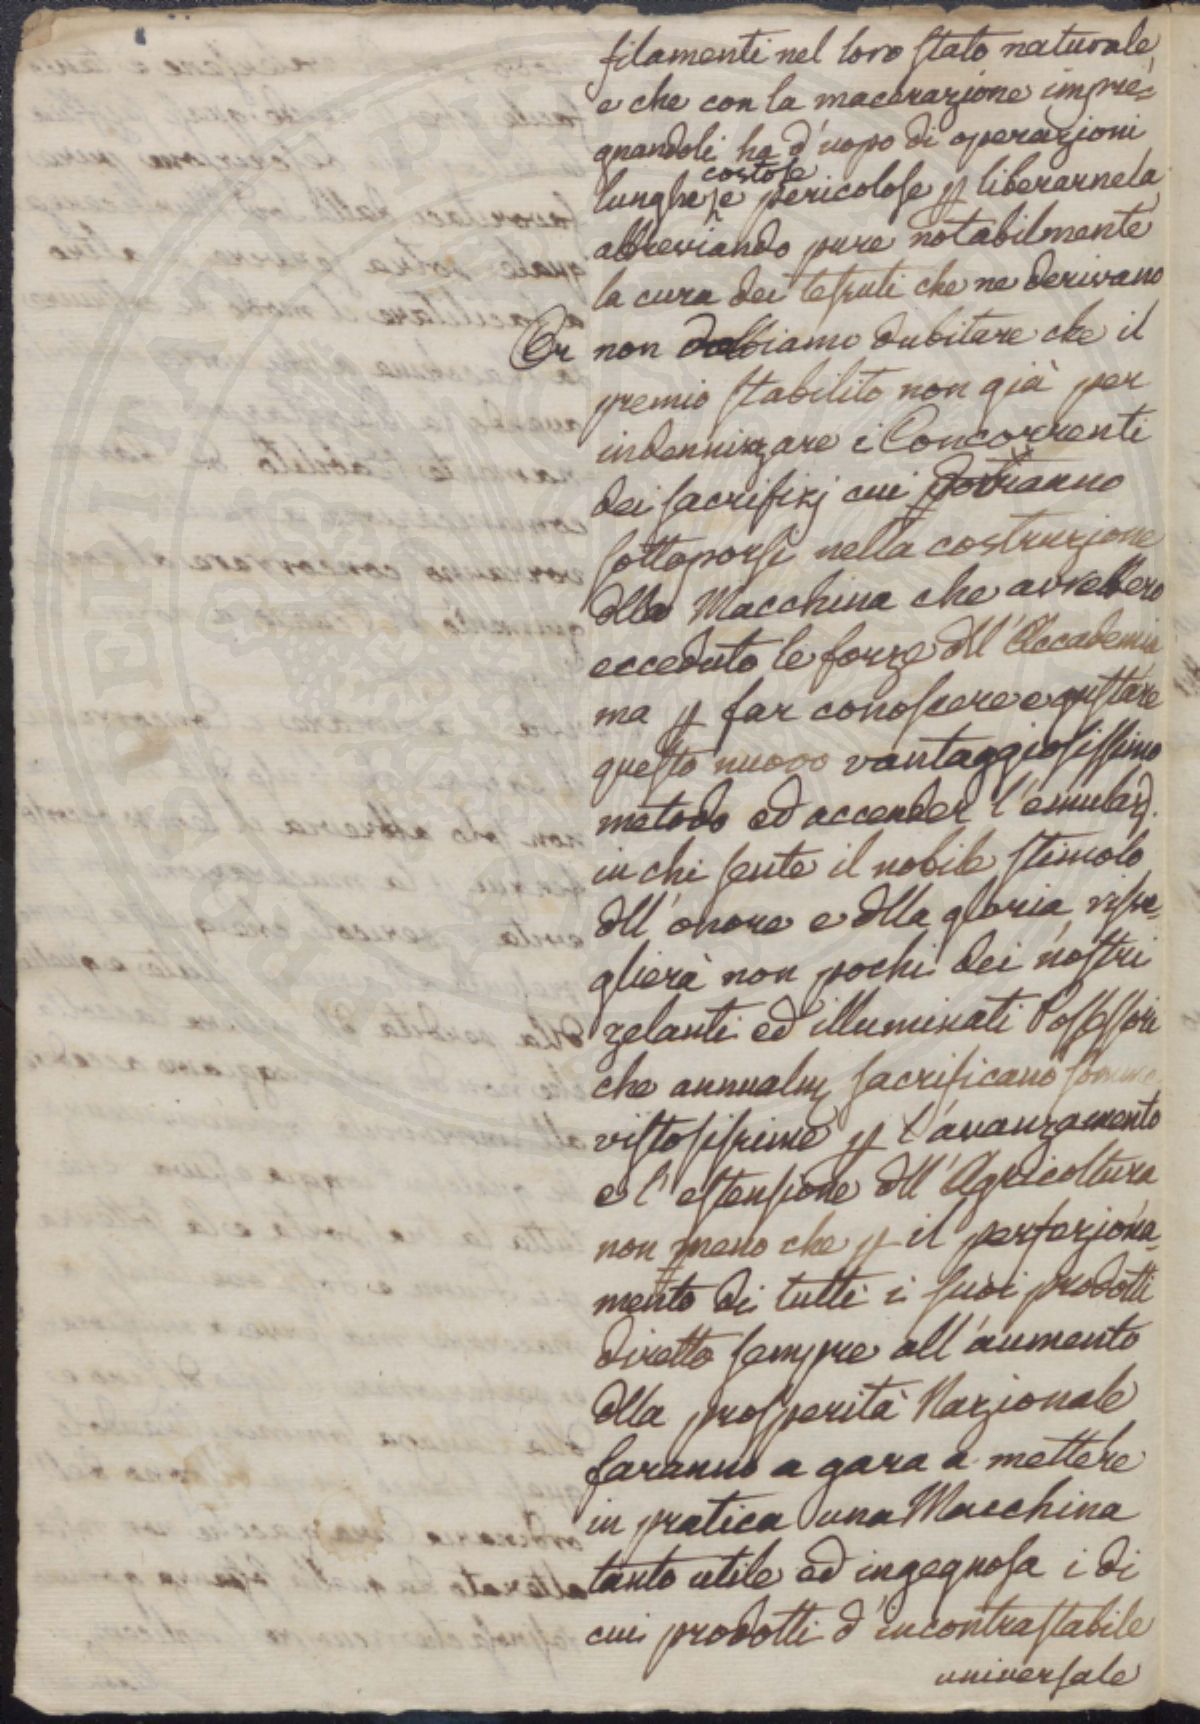 filamenti nel loro stato naturale
e che con la macerazione impre=
gnandoli ha d'uopo di operazioni
costose
lunghe, e pericolose p liberarnela
abbreviando pure notabilmente
la cura dei tessuti che ne derivano
Or non dobbiamo dubitare che il
premio stabilito non già per
indennizzare i Concorrenti
dei sacrifizj cui potranno
sottoporsi nella costruzione
dlla Macchina che avrebbero
ecceduto le forze dll'Accademia
ma p far conoscere e gustare
questo nuovo vantaggiosissimo
metodo ed accender l'emulaz.
in chi sente il nobile stimolo
dll'onore e dlla gloria, risve=
glierà non pochi dei nostri
zelanti ed illuminati Possessori
che annualm sacrificano somme
vistosissime p l'avanzamento
e l'estensione dll'Agricoltura
non meno che p il perfeziona=
mento di tutti i suoi prodotti
diretto sempre all'aumento
dlla prosperità Nazionale
faranno a gara a mettere
in pratica una Macchina
tanto utile ed ingegnosa i di
cui prodotti d'incontrastabile
universale